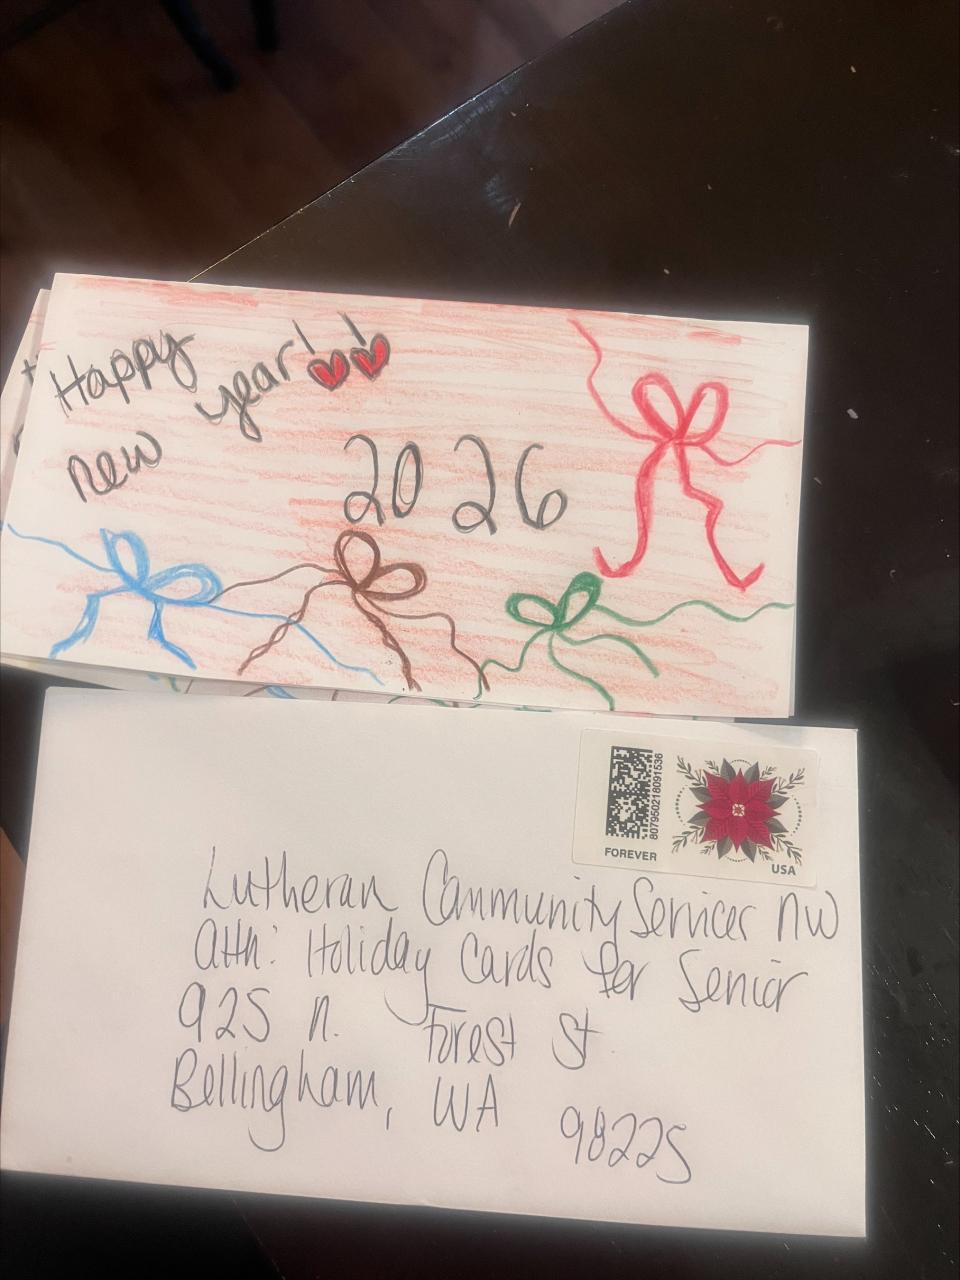 Happy
new year!!
2026
807950218091536
FOREVER
USA
Lutheran Community Services NW
attn: Holiday Cards for Senior
925 n. Forest St
Bellingham, WA
98225